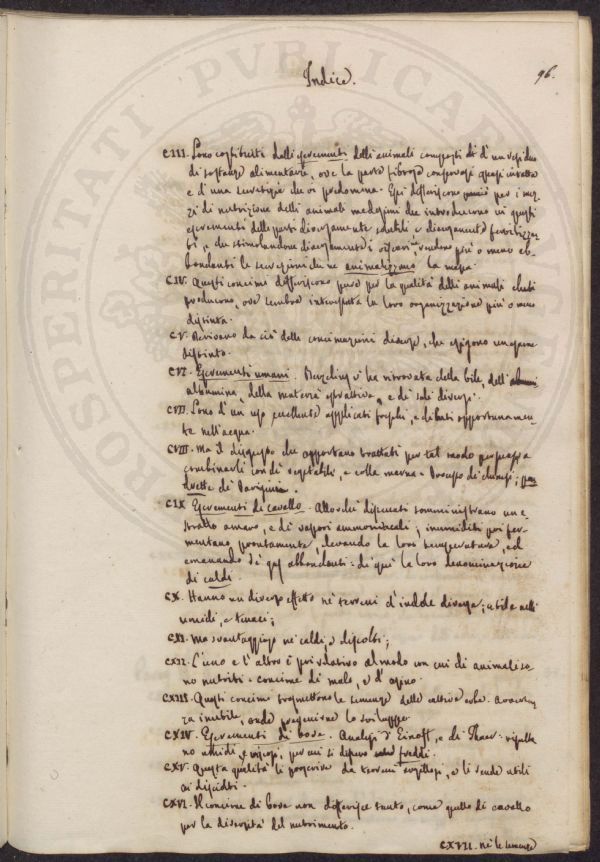 PROSPERITATI PVBLICAE
Indice.
96.
CIII. Sono costituiti dalli escrementi delli animali composti di d'un residuo
di sostanze alimentarie, ove la parte fibrosa conservasi quasi intatta
e d'una secrezione che vi predomina. Essi differiscono per i mez
zi di nutrizione delli animali medesimi che introducono in questi
escrementi delle parti diversamente solubili e diversamente fertilizzan
ti, e che stimolandone diversamente i visceri, rendono più o meno ab-
bondanti le secrezioni che ne animalizzano la massa.
CIV. Questi concimi differiscono pure per la qualità delli animali che li
producono, ove sembra interessata la loro organizzazione più o meno
distinta.
CV. Derivano da ciò delle concimazioni diverse, che esigono un esame
distinto.
CVI. Escrementi umani. Berzelius vi ha ritrovata della bile, dell'
albumina, della materia estrattiva, e de' sali diversi.
CVII. Sono d'un uso eccellente applicati freschi, e dilati opportunamen-
te nell'acqua.
CVIII. Ma il disgusto che apportano trattati per tal modo persuase a
combinarli con de' vegetabili, e colla marna.
drette de' Parigini.
CIX Escrementi di cavallo. Allorchè disseccati somministrano un e
stratto amaro, e de' vapori ammoniacali; inumiditi poi fer-
mentano prontamente, elevando la loro temperatura, ed
emanando de' gas abbondanti: di qui la loro denominazione
di caldi.
CX. Hanno un diverso effetto ne' terreni d'indole diversa; utile nelli
umidi, e tenaci;
CXI. Ma svantaggioso ne' caldi, e disciolti;
CXII. L'uno e l'altro è poi relativo al modo con cui di animali so
no nutriti: concime di mulo, e d'asino.
CXIII. Questi concimi trasmettono le semenze delle cattive erbe.
za inutile, onde prevenirne lo sviluppo.
CXIV. Escrementi di bove. Analisi d'Einoff, e di Thaer: risulta
no umidi, e viscosi, per cui si dissero freddi.
CXV. Questa qualità li proscrive da' terreni argillosi, e li rende utili
ai disciolti.
CXVI. Il concime di bove non differisce tanto, come quello di cavallo
per la diversità del nutrimento.
CXVII. nè le semenze